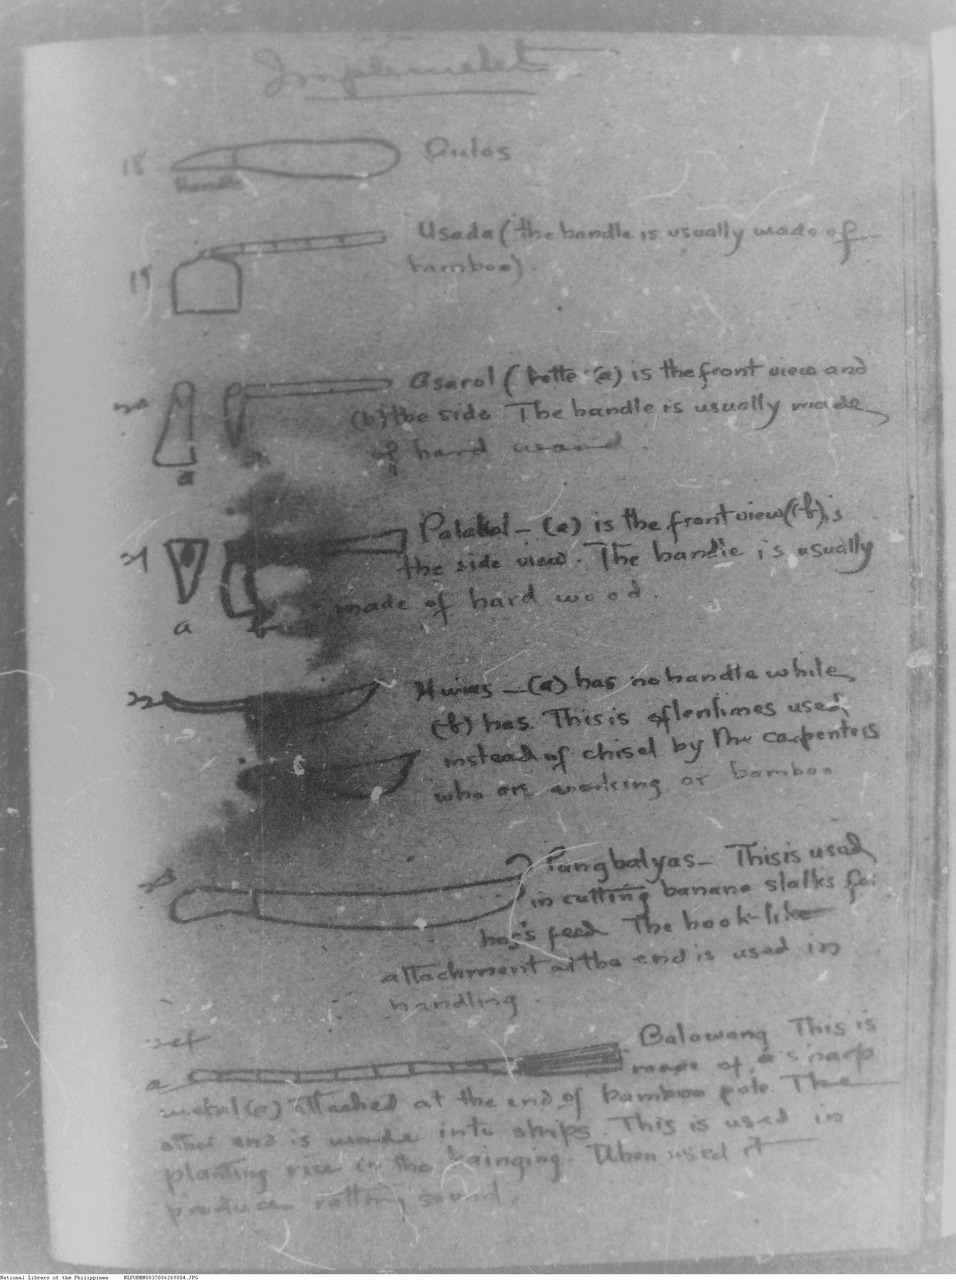 Implemelet
18
Dulos
Handle
19
Usada (the handle is usually made of
bamboo).
20
Asarol (lette (a) is the front view and
(b) the side The handle is usually made
of hard
a
21
Palakol - (a) is the front view (b) is
the side view. The handle is usually
made of hard wood.
a
22
(a) has no handle while
(b) has. This is oftentimes used
instead of chisel by the carpenters
who are working or bamboo
b
Pangbalyas - This is used
in cutting banana stalks for
hog's feed The hook-like
attachment at the end is used in
handling.
24
Balowang This is
a
made of a sharp
metal (a) attached at the end of bamboo pole. The
other end is made into strips. This is used in
planting rice in the kainging. When used it
produces sound.
National Library of the Philippines NLPOBMN0037006269004.JPG